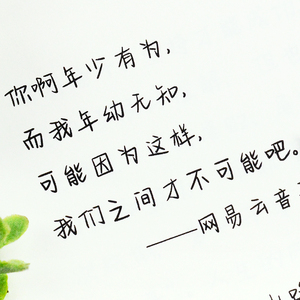 你啊年少有为,
而我年幼无知,
可能因为这样,
我们之间才不可能吧。
——网易云音